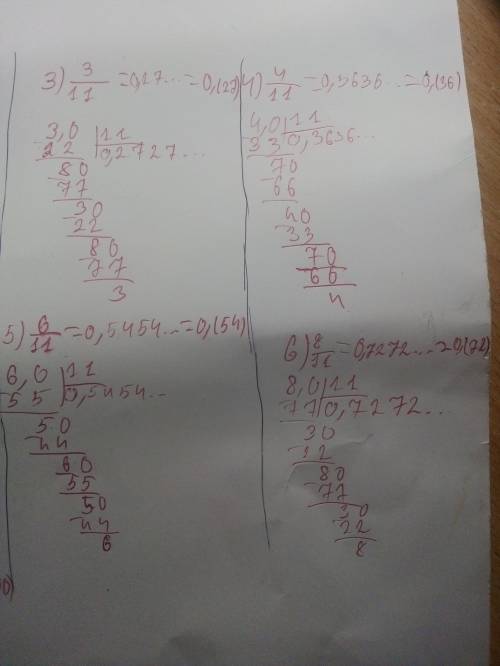 3) 3/11 = 0,27... = 0,(27)
3,0 | 11
22 0,2727...
80
77
30
22
80
77
3
4) 4/11 = 0,3636... = 0,(36)
4,0 | 11
33 0,3636...
70
66
40
33
70
66
4
5) 6/11 = 0,5454... = 0,(54)
6,0 | 11
55 0,5454...
50
44
60
55
50
44
6
6) 8/11 = 0,7272... = 0,(72)
8,0 | 11
77 0,7272...
30
22
80
77
30
22
8